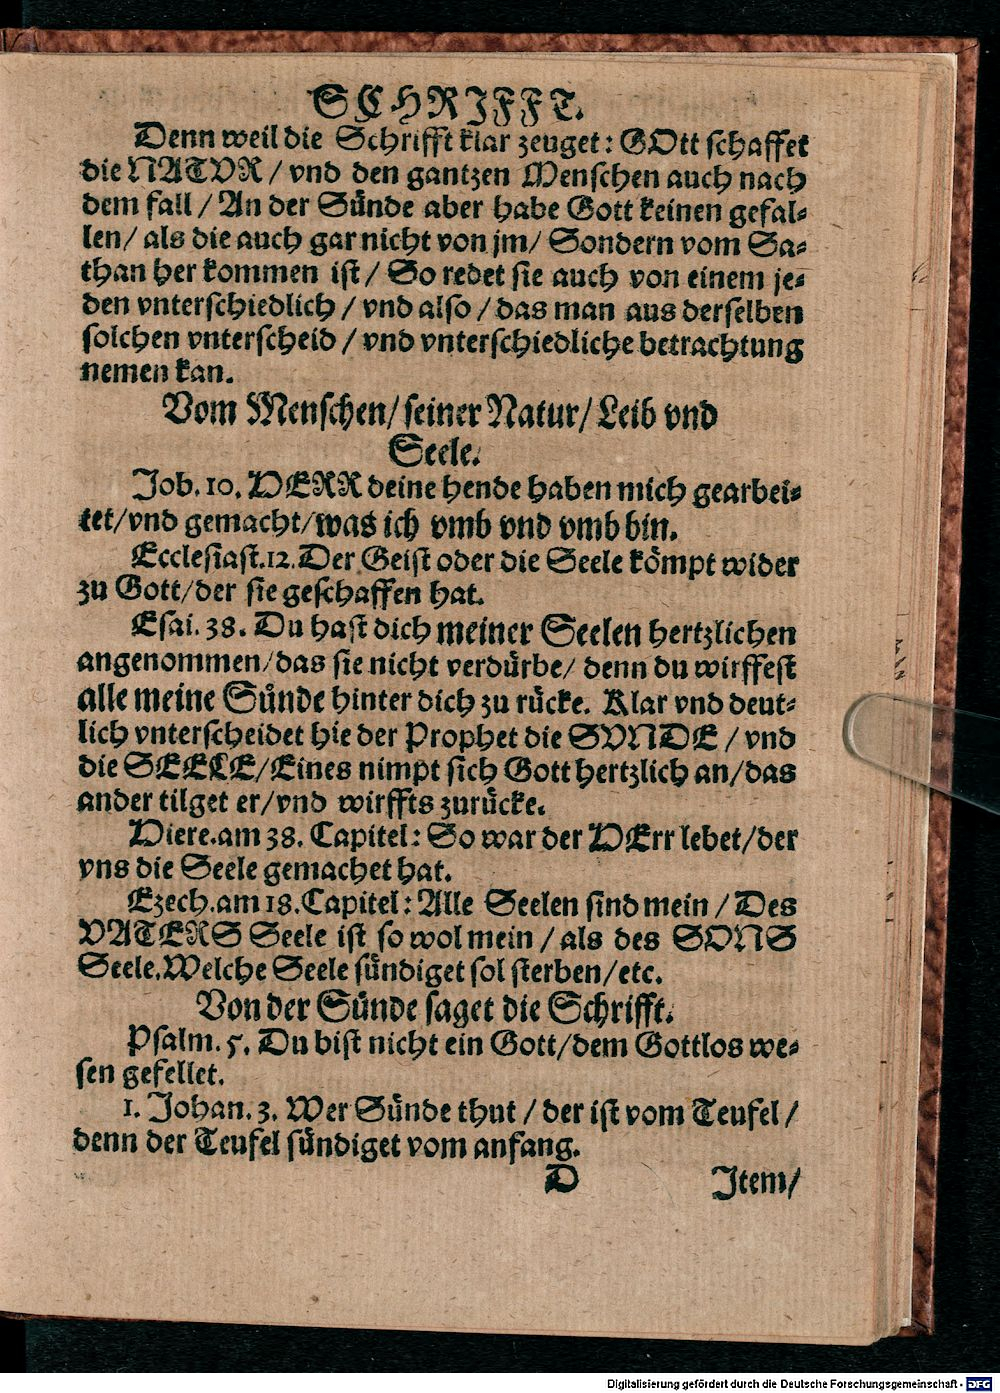 SCHRIFFT.
Denn weil die Schrifft klar zeuget: GOtt schaffet
die NATVR / vnd den gantzen Menschen auch nach
dem fall / An der Sünde aber habe Gott keinen gefal-
len/ als die auch gar nicht von jm/ Sondern vom Sa-
than her kommen ist / So redet sie auch von einem je-
den vnterschiedlich / vnd also / das man aus derselben
solchen vnterscheid / vnd vnterschiedliche betrachtung
nemen kan.
Vom Menschen/ seiner Natur/ Leib vnd
Seele.
Job. 10. HERR deine hende haben mich gearbei-
tet/vnd gemacht/was ich vmb vnd vmb bin.
Ecclesiast.12.Der Geist oder die Seele kömpt wider
zu Gott/der sie geschaffen hat.
Esai. 38. Du hast dich meiner Seelen hertzlichen
angenommen/das sie nicht verdürbe/ denn du wirffest
alle meine Sünde hinter dich zu rücke. Klar vnd deut-
lich vnterscheidet hie der Prophet die SVNDE / vnd
die SEELE/Eines nimpt sich Gott hertzlich an/das
ander tilget er/vnd wirffts zurücke.
Hiere.am 38. Capitel: So war der HErr lebet/der
vns die Seele gemachet hat.
Ezech.am 18.Capitel: Alle Seelen sind mein / Des
VATERS Seele ist so wol mein / als des SONS
Seele.Welche Seele sündiget sol sterben/etc.
Von der Sünde saget die Schrifft.
Psalm. 5. Du bist nicht ein Gott/dem Gottlos we-
sen gefellet.
1. Johan. 3. Wer Sünde thut / der ist vom Teufel /
denn der Teufel sündiget vom anfang.
D Item/
Digitalisierung gefördert durch die Deutsche Forschungsgemeinschaft - DFG